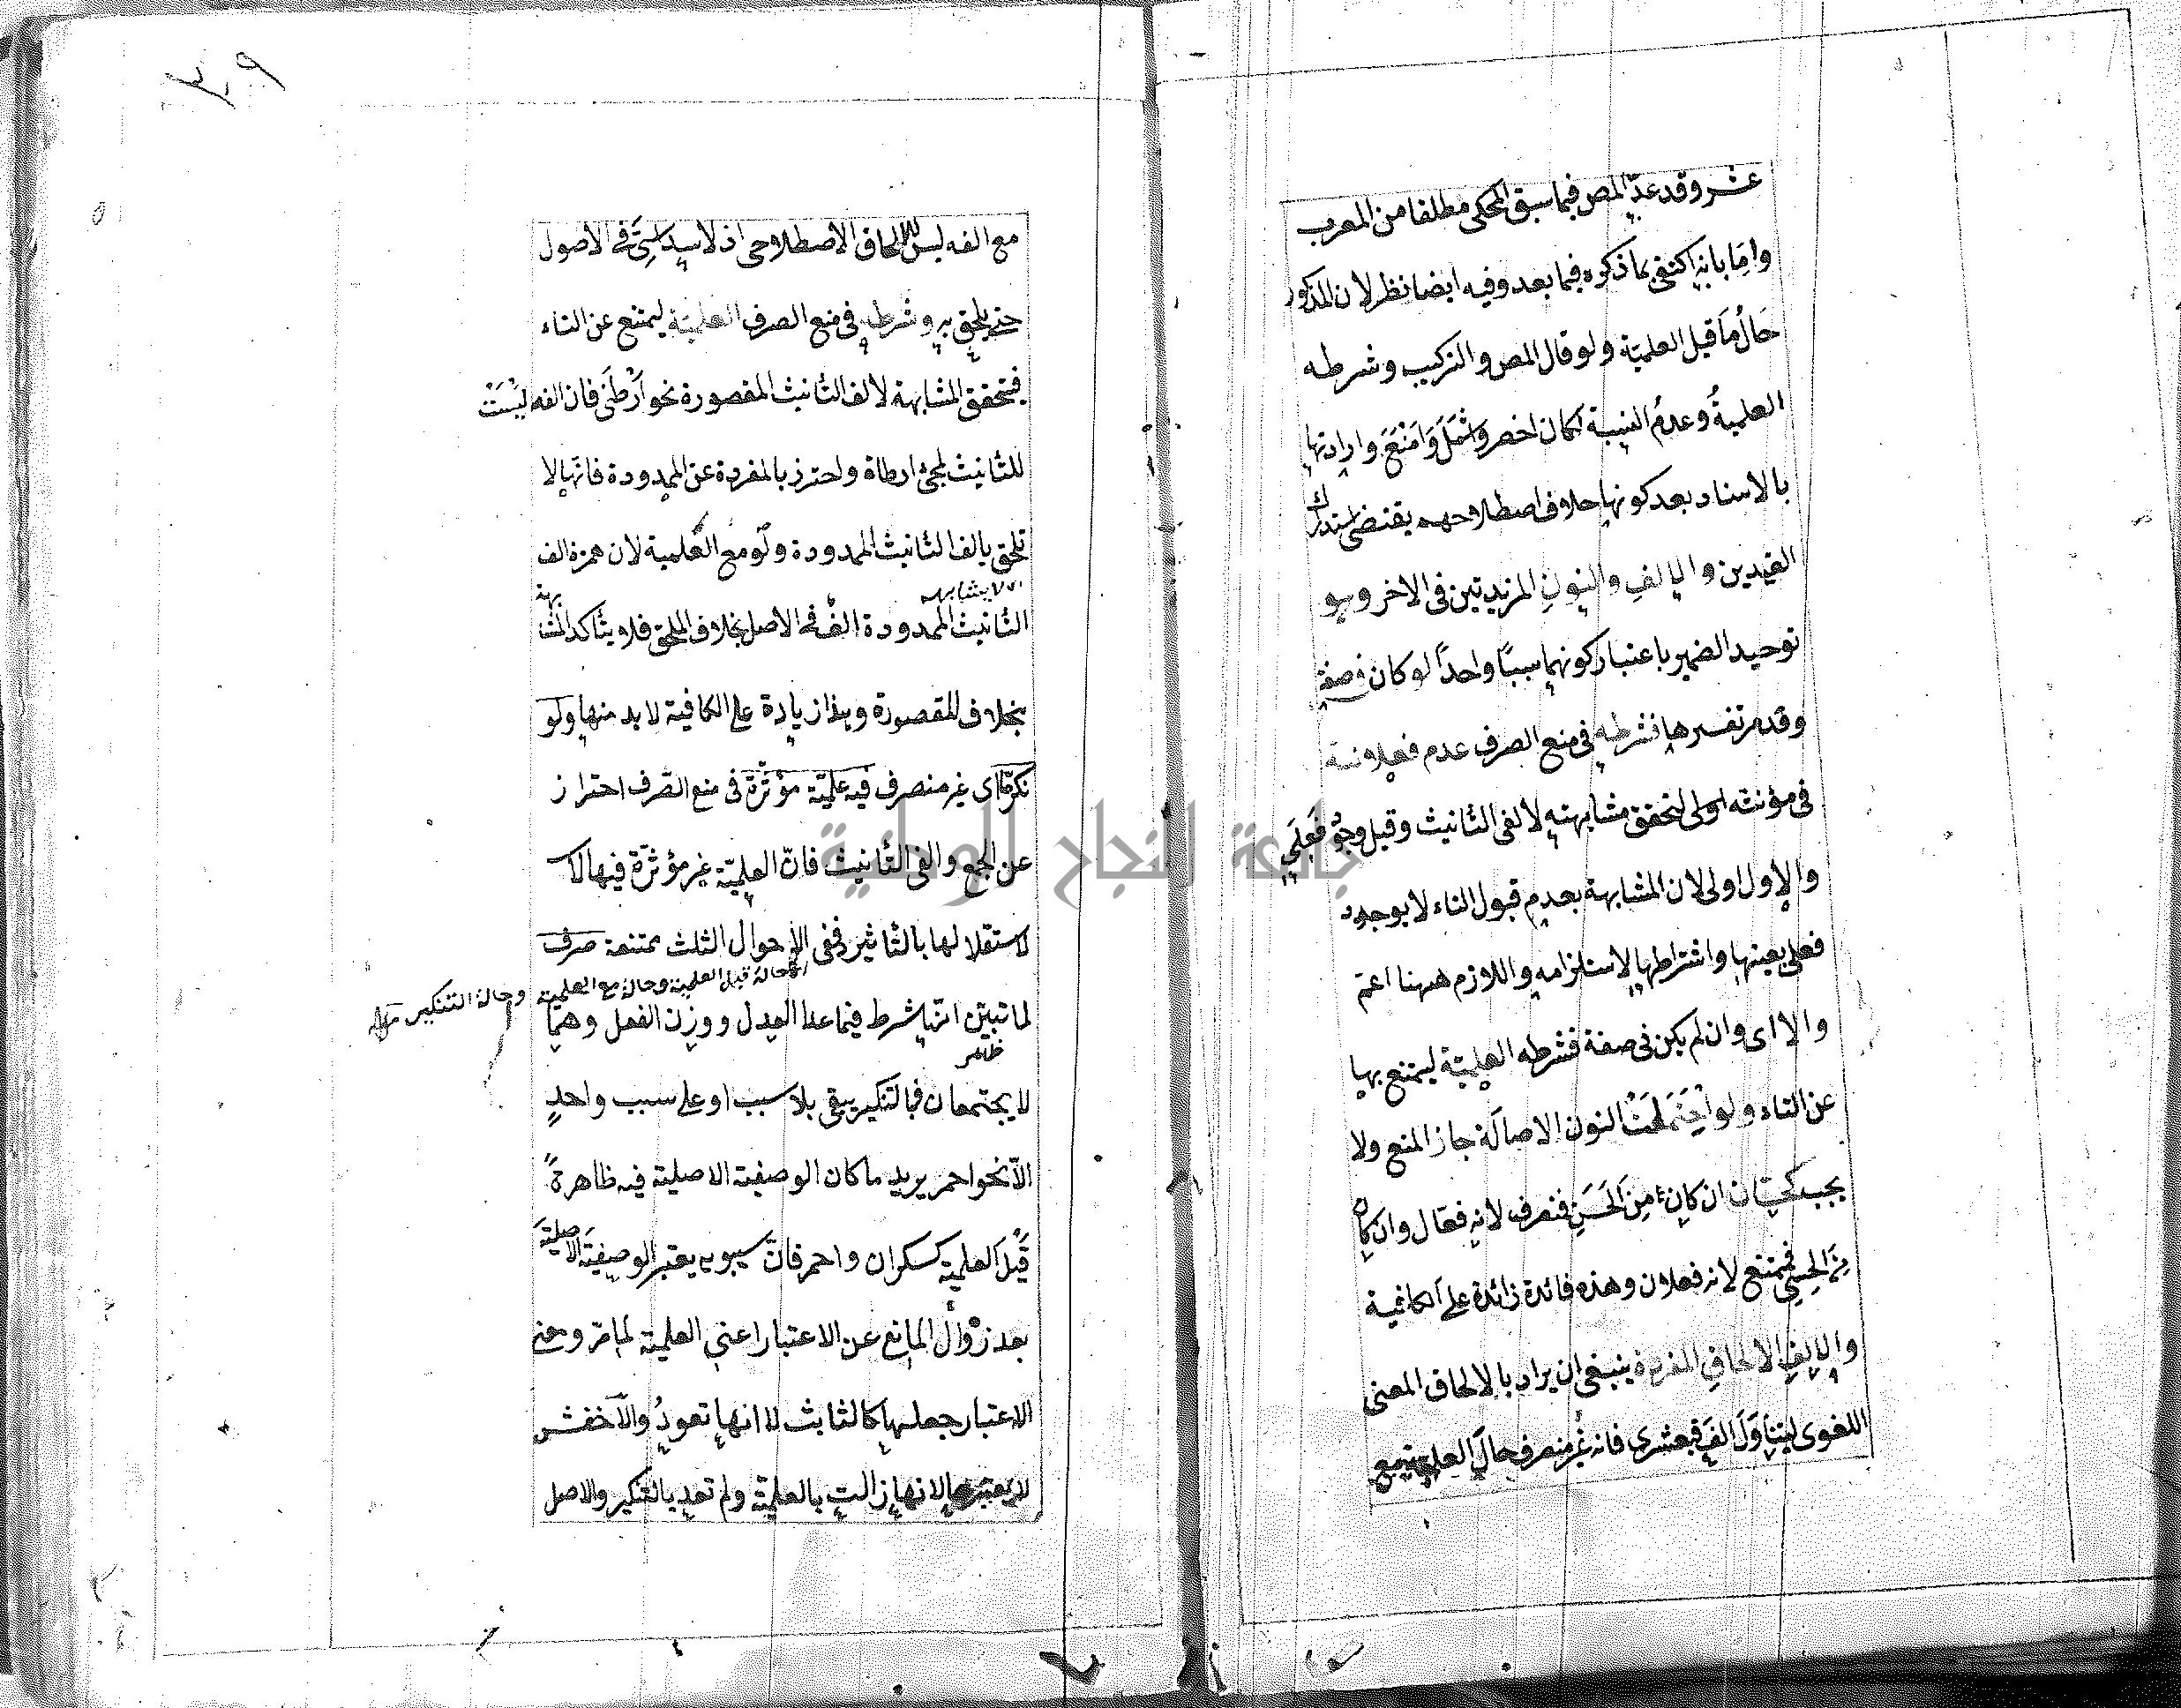 عشر وقد عدّ المص فيما سبق المحكى مطلقا من المعرب
وامّا بانه اكتفى بما ذكره فيما بعد وفيه ايضا نظر لان المذكور
حالُ ما قيل العلميّة ولو قال المص والتركيب وشرطه
العلميةُ وعدمُ النسبة لكان اخصر واشملَ وامنَعَ وارادتها
بالاسناد بعد كونها خلاف اصطلاحهم يقتضى استدراك
القيدين والالفِ والنونِ المزيدتين فى الاخر وهو
توحيد الضمير باعتبار كونهما سببًا واحدًا لو كان فى صفة
وقد مر تفسيرها فشرطه فى منع الصرف عدم فعلانة
فى مؤنثه اولى لتحقق مشابهته لالفى التأنيث وقيل وجودُ فَعْلَى
والاول اولى لان المشابهة بعدم قبول التاء لا بوجود
فعلى بعينها واشتراطها لاستلزامه واللازم ههنا اعم
والا اى وان لم يكن فى صفة فشرطه العلميّة ليمتنع بها
عن التاء ولو احتملت النون الاصالة جاز المنع ولا
يجب كحسّان ان كان من الحَسَنِ فنصرف لانه فعّال وان كان
من الحِسّ فيمتنع لانه فعلان وهذه فائدة زائدة على الكافية
والالفِ الالحاقِ المفردة ينبغى ان يراد بالالحاق المعنى
اللغوى ليتناولَ الفَ قبعثرى فانه غير منصرف حال العلمية
مع الفه ليس للالحاق الاصطلاحى اذ لا سداسىَّ فى الاصول
حتى يلحق به وشرطه فى منع الصرف العلميّة ليمتنع عن التاء
فيتحقق المشابهة لالف التأنيث المقصورة نحو أرْطَى فان الفه ليْسَتْ
للتأنيث لمجئ ارطاة واحترز بالمفردة عن الممدودة فانها لا
تلحق بالف التأنيث الممدودة ولو مع العلمية لان همزة الف
اى لا يشابهه
التأنيث الممدودة الفٌ فى الاصل بخلاف الملحق فلا يتأكد المشابهة
بخلاف المقصورة وهذا زيادة على الكافية لا بد منها ولو
نكر ما اى غير منصرف فيه علميّة مؤثّرة فى منع الصّرف احتراز
عن الجمع والفى التأنيث فانّ العلميّة غير مؤثّرة فيها لا
لاستقلالها بالتأثير ففى الاحوال الثلث ممتنعة صرف
حالة قبل العلمية وحالة مع العلمية وحالة التنكير
لما تبيّن انّها شرط فيما عدا العدل ووزن الفعل وهما
ظاهر
لا يجتمعان فبالتنكير يبقى بلا سبب او على سبب واحدٍ
الّا نحو احمر يريد ما كان الوصفية الاصلية فيه ظاهرةً
قَبْلَ العلمية كسكران واحمر فانّ سيبويه يعتبر الوصفيةَ الاصليةَ
بعد زوال المانع عن الاعتبار اعنى العلمية لما مرّ ومعنى
الاعتبار جعلها كالثابت لا انها تعودُ والاخفش
لا يعتبرها لانها زالت بالعلميّة ولم تعد بالتنكير والاصل